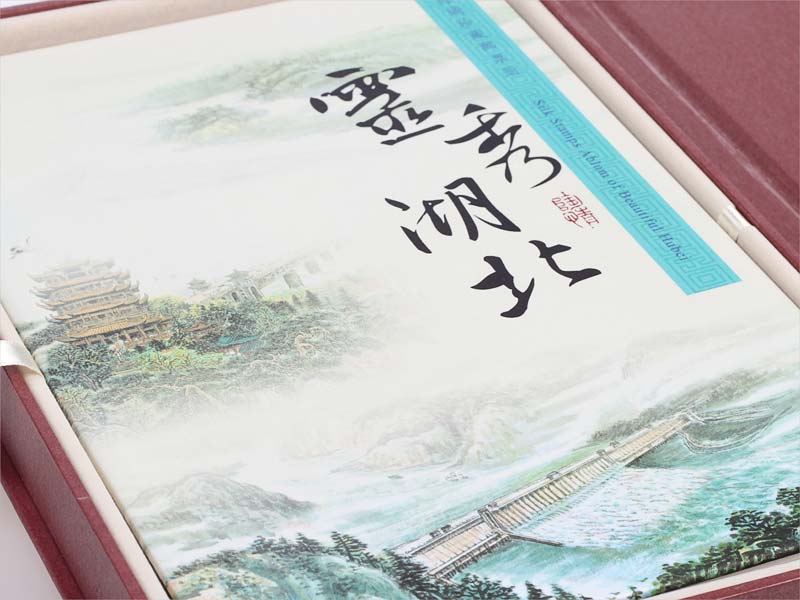 靈秀
湖北
Silk Stamps Ablum of Beautiful Hubei